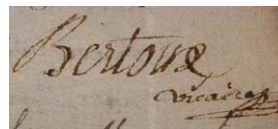 Bertoux
vicaire